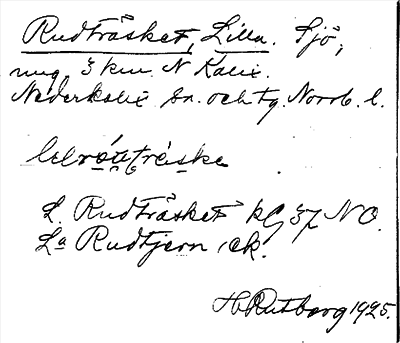 Rudträsket, Lilla. Sjö,
ung. 3 km. N Kalix.
Nederkalix sn. och tg. Norrb. l.
L. Rudträsket kG 37 NO.
La Rudtjern, ek.
H. Rutberg 1925.